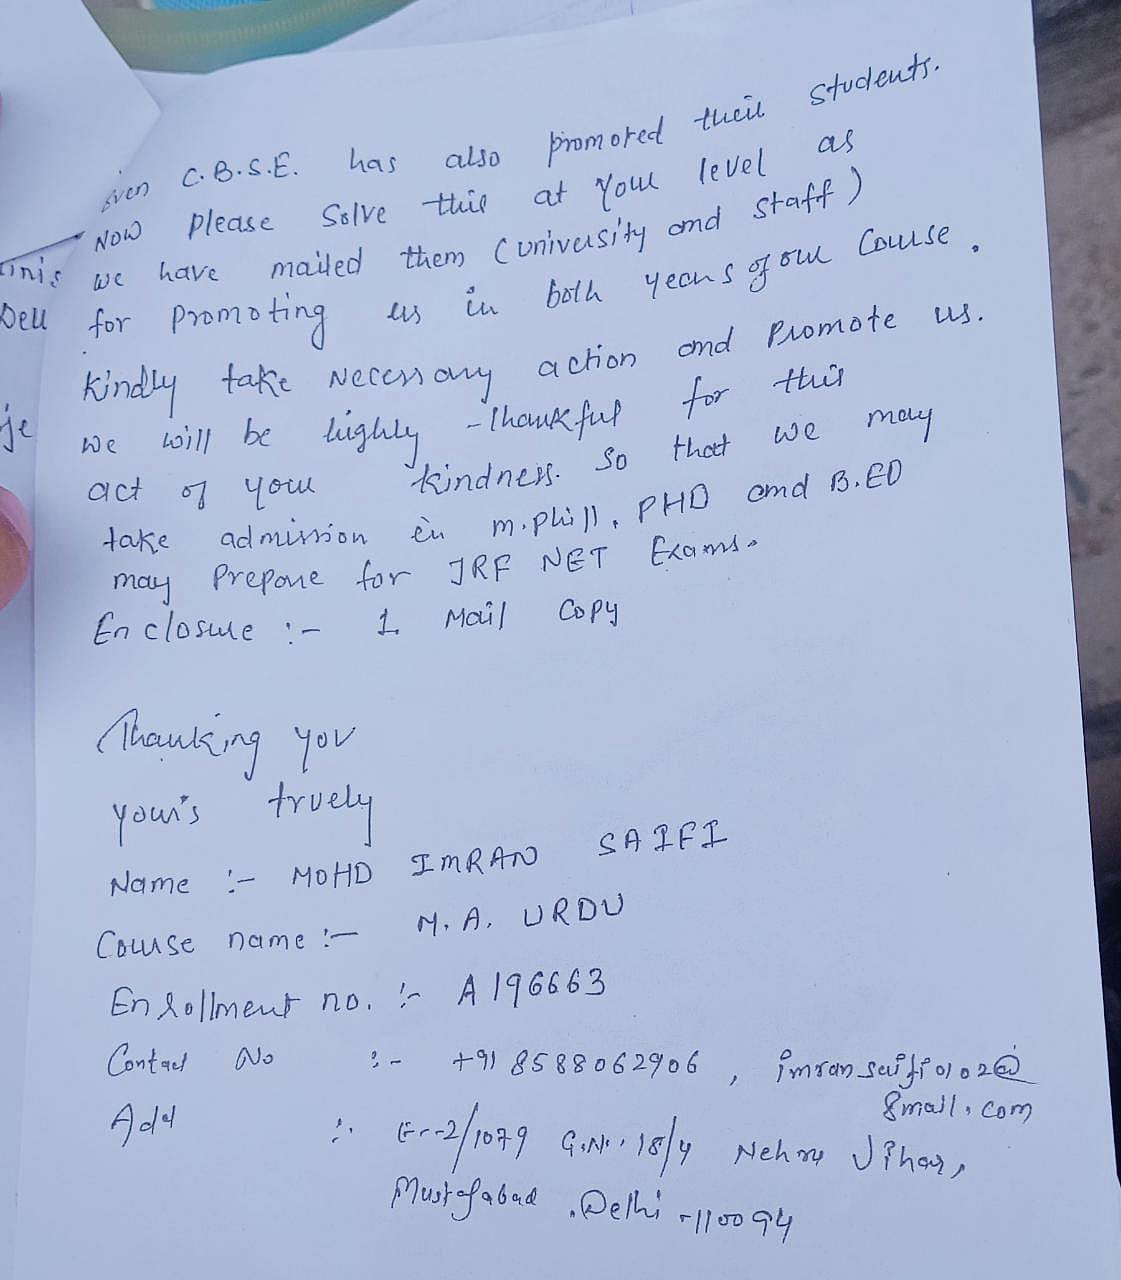 even C.B.S.E. has also promoted their students.
Now please solve this at your level as
we have mailed them (university and staff)
for promoting us in both years of our course.
kindly take necessary action and promote us.
we will be highly thankful for this
act of your kindness. so that we may
take admission in m.phill, PHD and B.ED
may prepare for JRF NET Exams.
Enclosure :- 1. Mail copy
Thanking you
your's truely
Name :- MOHD IMRAN SAIFI
Course name :- M.A. URDU
Enrollment no. :- A196663
Contact No :- +91 8588062906, imransaifi0102@
gmail.com
Add :. 2/1079 G.N. 18/4 Nehru Vihar,
Mustafabad, Delhi -110094